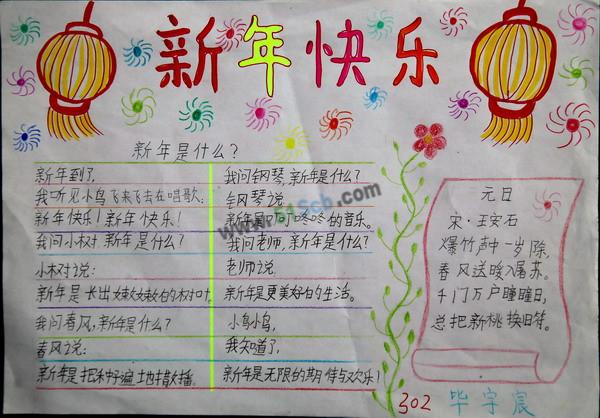 新年快乐
新年是什么?
新年到了,
我听见小鸟飞来飞去在唱歌:
新年快乐!新年快乐!
我问小树,新年是什么?
小树说:
新年是长出嫩嫩的树叶。
我问春风,新年是什么?
春风说:
新年是把种子遍地撒播。
我问钢琴,新年是什么?
钢琴说:
新年是叮叮咚咚的音乐。
我问老师,新年是什么?
老师说:
新年是更美好的生活。
小鸟小鸟,
我知道了,
新年是无限的期待与欢乐!
元日
宋·王安石
爆竹声中一岁除,
春风送暖入屠苏。
千门万户曈曈日,
总把新桃换旧符。
302 毕宇宸